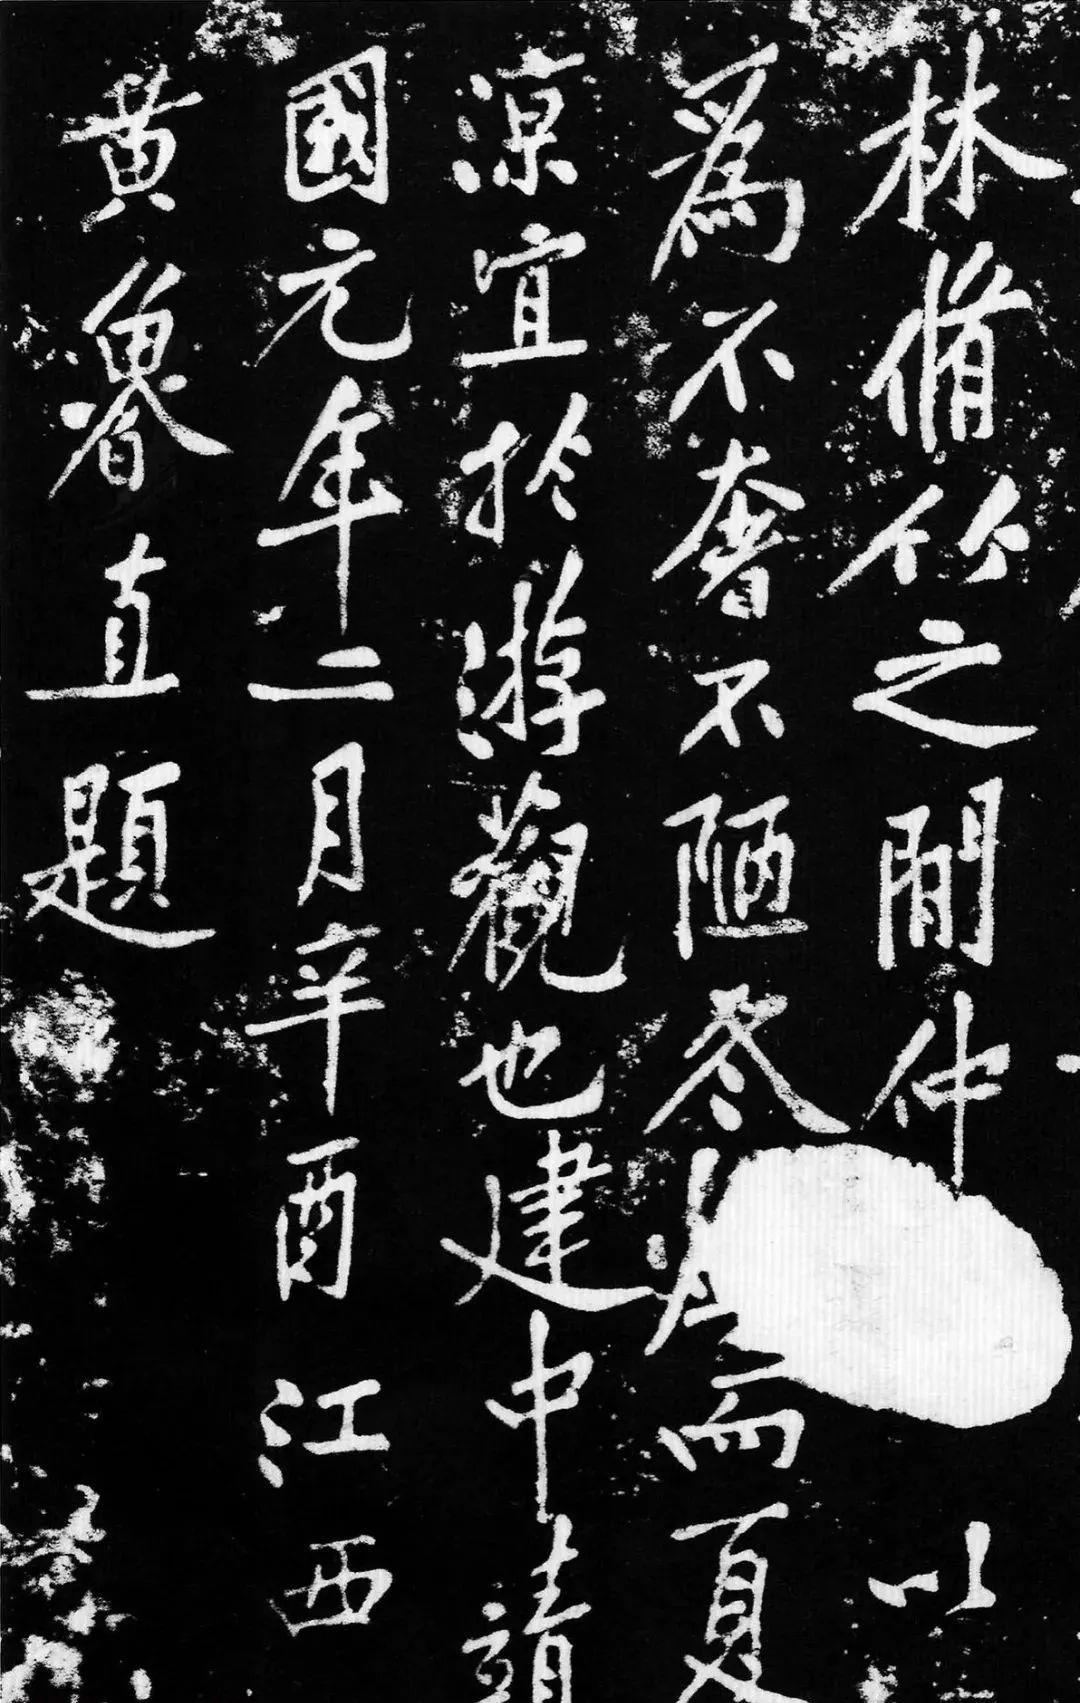 林脩竹之間仲以
爲不奢不陋冬而夏
涼宜於游觀也建中靖
國元年二月辛酉江西
黄魯直題